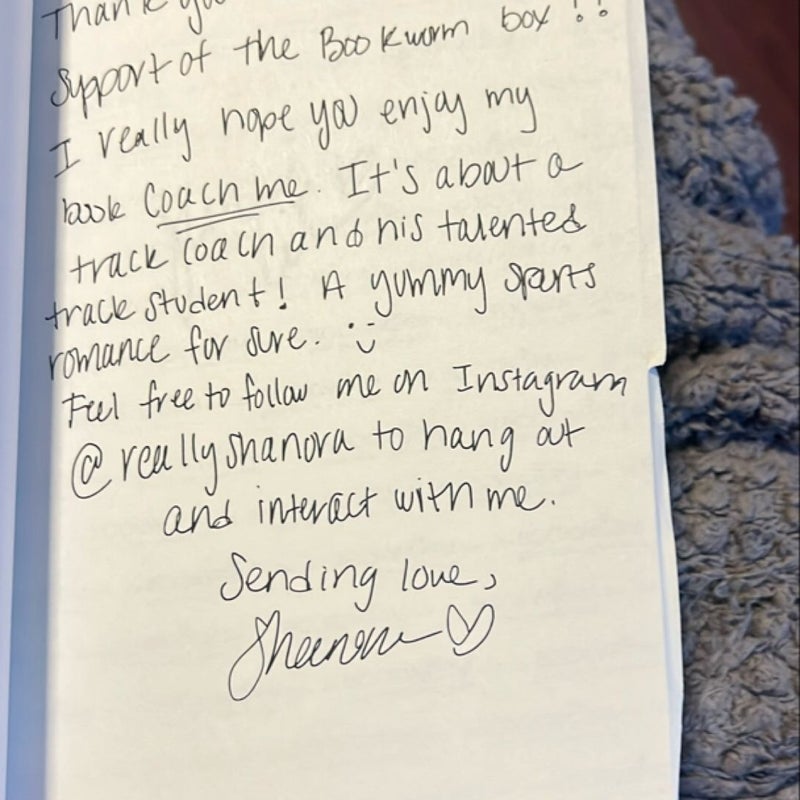 Thank you
Support of the Bookworm box!!
I really hope you enjoy my
book Coach me. It's about a
track coach and his talented
track student! A yummy sports
romance for sure. :)
Feel free to follow me on Instagram
@reallyshanora to hang out
and interact with me.
Sending love,
Shanora ♡